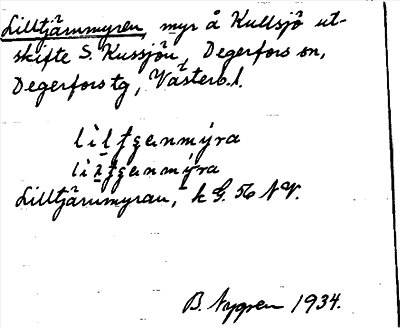 Lilltjärnmyren, myr å Kullsjö ut-
skifte S. Kussjön, Degerfors sn,
Degerfors tg, Västerb. l.
lìlţgɛnmýra
Lilltjärnmyran, k G. 56 NV.
B. Nygren 1934.